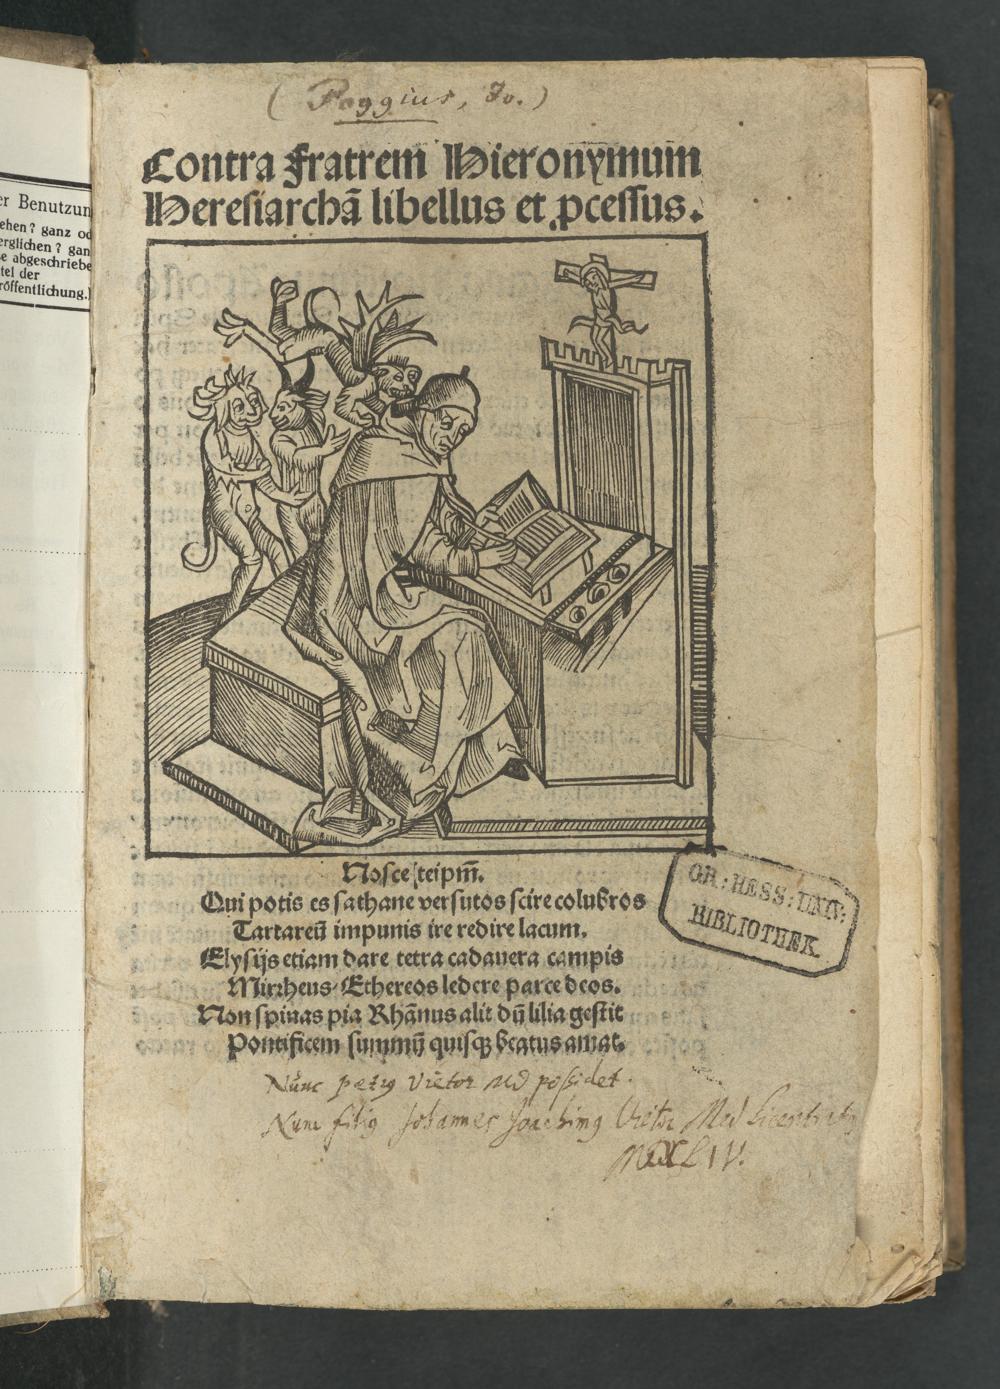 ( Poggius, Jo. )
Contra fratrem Hieronymum
Heresiarchã libellus et ꝓcessus.
er Benutzun
ehen? ganz od
erglichen? gan
e abgeschriebe
tel der
röffentlichung.
Nosce teipm̃.
Qui potis es sathane versutos scire colubros
Tartareũ impunis ire redire lacum.
Elysijs etiam dare tetra cadauera campis
Mirrheus Ethereos ledere parce deos.
Non spinas pia Rhãnus alit dũ lilia gestit
Pontificem summũ quisq̃ beatus amat.
GR: HESS: UNIV:
BIBLIOTHEK.
Nunc petrꝰ Vietor possidet.
Nunc filiꝰ Johannes Joachimꝰ Vietor Med